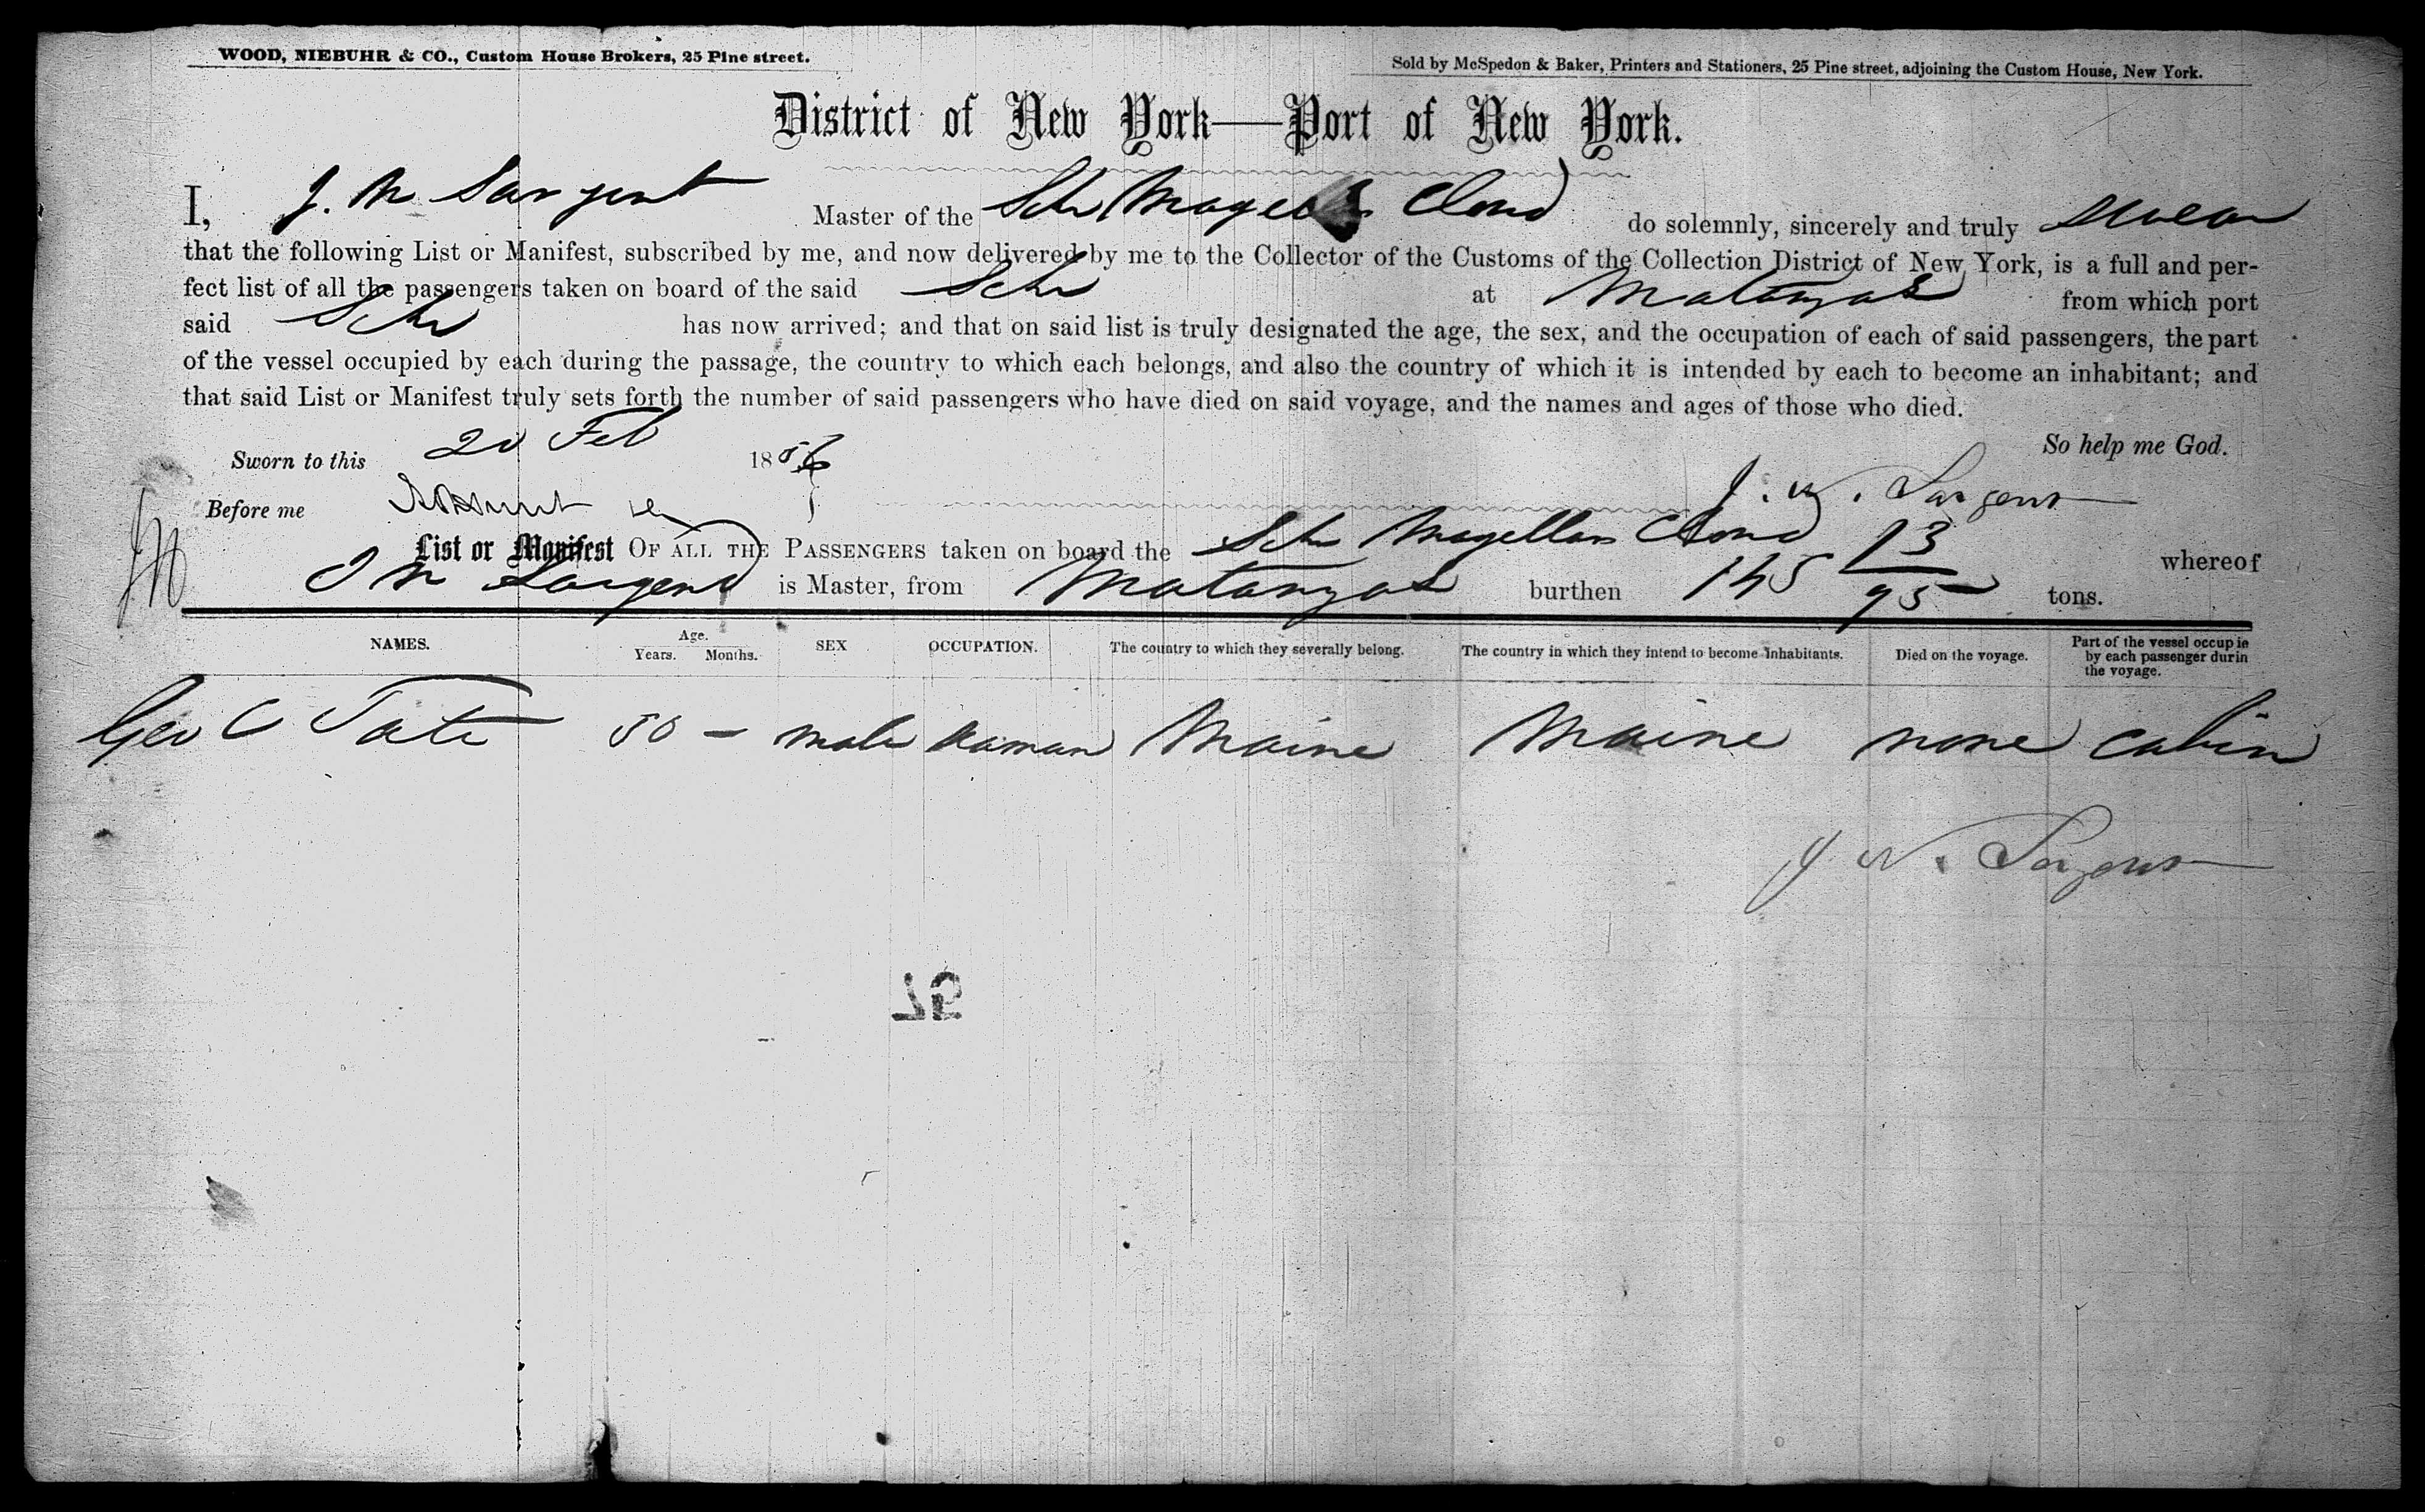 WOOD, NIEBUHR & CO., Custom House Brokers, 25 Pine street.
Sold by McSpedon & Baker, Printers and Stationers, 25 Pine street, adjoining the Custom House, New York.
District of New York—Port of New York.
I, J. N Sargent Master of the Schr Magellan Cloud do solemnly, sincerely and truly swear
that the following List or Manifest, subscribed by me, and now delivered by me to the Collector of the Customs of the Collection District of New York, is a full and per-
fect list of all the passengers taken on board of the said Schr at Matanzas from which port
said Schr has now arrived; and that on said list is truly designated the age, the sex, and the occupation of each of said passengers, the part
of the vessel occupied by each during the passage, the country to which each belongs, and also the country of which it is intended by each to become an inhabitant; and
that said List or Manifest truly sets forth the number of said passengers who have died on said voyage, and the names and ages of those who died.
So help me God.
Sworn to this 20 Feb 1856
Before me
J. N. Sargent
List or Manifest OF ALL THE PASSENGERS taken on board the Schr Magellan Cloud whereof
J N Sargent is Master, from Matanzas burthen 145 13/95 tons.
NAMES. Age. Years. Months. SEX OCCUPATION. The country to which they severally belong. The country in which they intend to become inhabitants. Died on the voyage. Part of the vessel occupie by each passenger durin the voyage.
Geo C Tate 50 – male Seaman Maine Maine none cabin
J N. Sargent
92